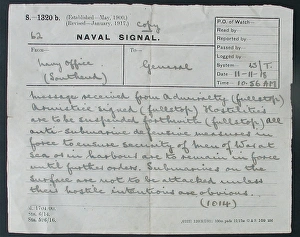 S. 1320 b.
(Established—May, 1900.)
(Revised—January, 1917.)
Copy
62
NAVAL SIGNAL.
P.O. of Watch—
Read by
Reported by
Passed by
Logged by
System W/T.
Date 11-11-18
Time 10.56 AM
From— To—
Navy Office General
(Southend)
Message received from Admiralty (fullstop)
Armistice signed (fullstop) Hostilities
are to be suspended forthwith (fullstop) All
anti-submarine defensive measures in
force to ensure security of men of War at
sea or in harbour are to remain in force
until further orders. Submarines on the
surface are not to be attacked unless
their hostile intentions are obvious.
(1014)
Sta. 6/14.
Sta. 5/6/16.